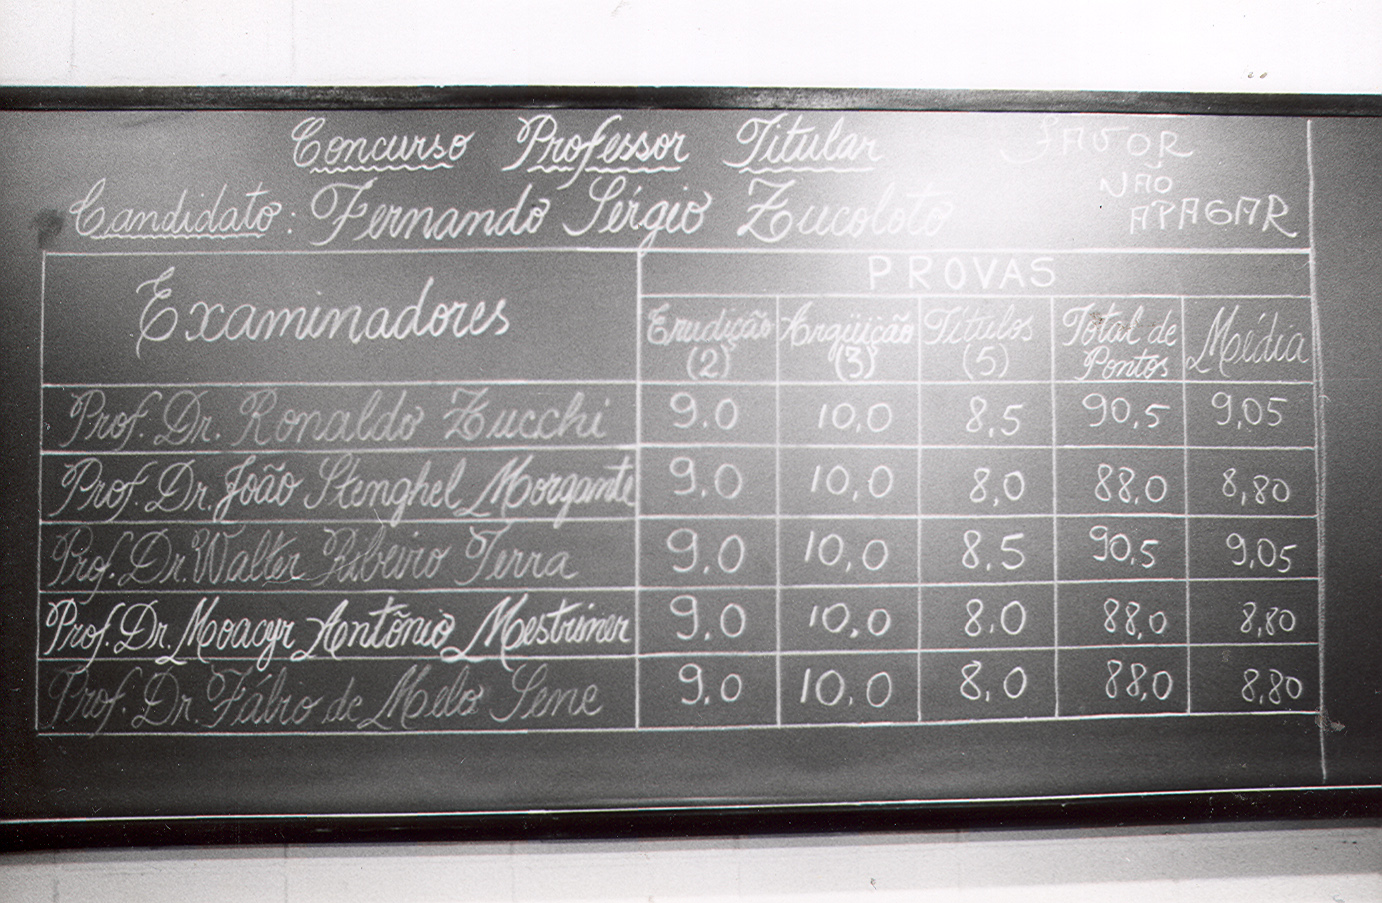 Concurso Professor Titular
FAVOR NÃO APAGAR
Candidato: Fernando Sérgio Zucoloto
Examinadores
PROVAS
Erudição (2) Argüição (3) Títulos (5) Total de Pontos Média
Prof. Dr. Ronaldo Zucchi 9.0 10,0 8,5 90,5 9,05
Prof. Dr. João Stenghel Morgante 9.0 10,0 8,0 88,0 8,80
Prof. Dr. Walter Ribeiro Terra 9.0 10,0 8.5 90,5 9,05
Prof. Dr. Moacyr Antônio Mestriner 9.0 10,0 8.0 88,0 8,80
Prof. Dr. Fábio de Melo Sene 9.0 10.0 8,0 88,0 8,80